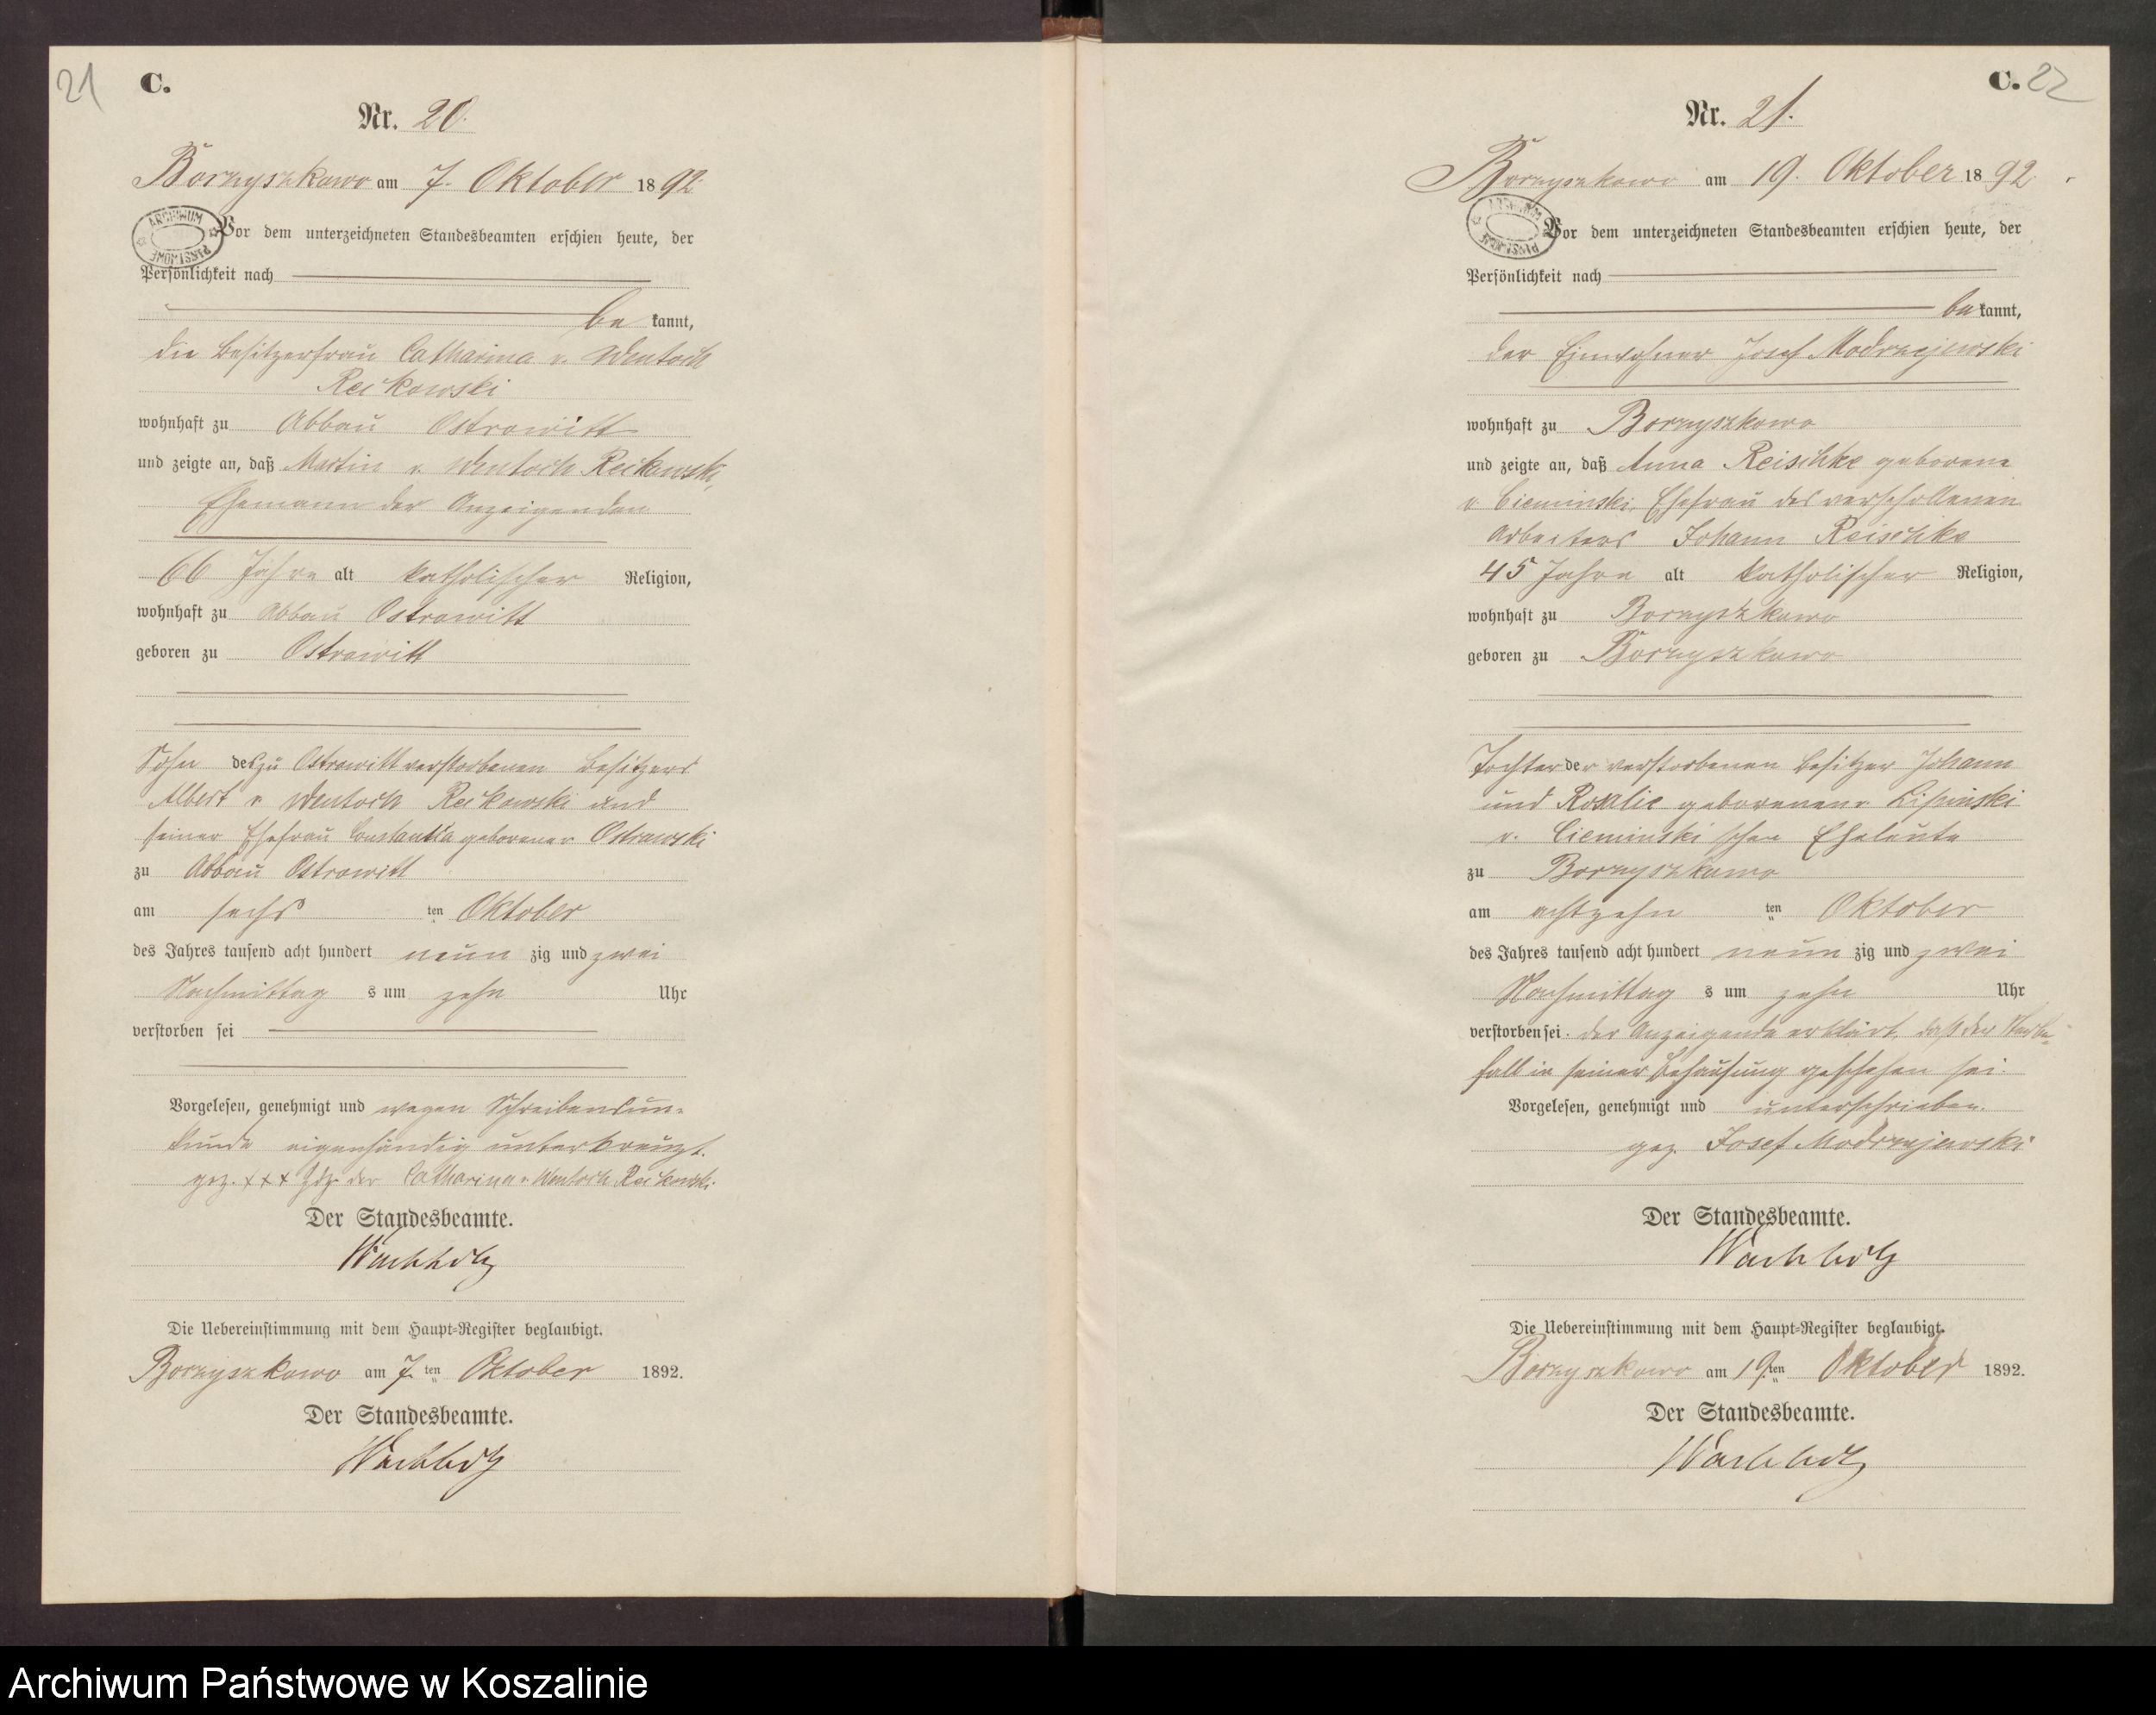 21
C.
Nr. 20.
Borzyszkowo am 7. Oktober 1892.
ARCHIWUM PAŃSTWOWE
Vor dem unterzeichneten Standesbeamten erschien heute, der
Persönlichkeit nach
be kannt,
die Besitzerfrau Catharina v. Wentoch
Reikowski
wohnhaft zu Abbau Ostrowitt
und zeigte an, daß Martin v. Wentoch Reikowski,
Ehemann der Anzeigenden
66 Jahre alt katholischer Religion,
wohnhaft zu Abbau Ostrowitt
geboren zu Ostrowitt
Sohn des zu Ostrowitt verstorbenen Besitzers
Albert v. Wentoch Reikowski und
seiner Ehefrau Constantia geborener Ostrowski
zu Abbau Ostrowitt
am sechs ten Oktober
des Jahres tausend acht hundert neun zig und zwei
Nachmittag s um zehn Uhr
verstorben sei
Vorgelesen, genehmigt und wegen Schreibensun-
kunde eigenhändig unterkreuzt.
gez. +++ Hdz. der Catharina v. Wentoch Reikowski.
Der Standesbeamte.
Wachholz
Die Uebereinstimmung mit dem Haupt-Register beglaubigt.
Borzyszkowo am 7. ten Oktober 1892.
Der Standesbeamte.
Wachholz
C. 22
Nr. 21.
Borzyszkowo am 19. Oktober 1892.
ARCHIWUM PAŃSTWOWE
Vor dem unterzeichneten Standesbeamten erschien heute, der
Persönlichkeit nach
be kannt,
der Einwohner Josef Modrzejewski
wohnhaft zu Borzyszkowo
und zeigte an, daß Anna Reischke geborene
v. Cieminski, Ehefrau des verschollenen
Arbeiters Johann Reischke
45 Jahre alt katholischer Religion,
wohnhaft zu Borzyszkowo
geboren zu Borzyszkowo
Tochter der verstorbenen Besitzer Johann
und Rosalie geborenene Lipinski
v. Cieminski'schen Eheleute
zu Borzyszkowo
am achtzehn ten Oktober
des Jahres tausend acht hundert neun zig und zwei
Nachmittag s um zehn Uhr
verstorben sei. Der Anzeigende erklärt, daß der Sterbe-
fall in seiner Behausung geschehen sei.
Vorgelesen, genehmigt und unterschrieben.
gez. Josef Modrzejewski
Der Standesbeamte.
Wachholz
Die Uebereinstimmung mit dem Haupt-Register beglaubigt.
Borzyszkowo am 19. ten Oktober 1892.
Der Standesbeamte.
Wachholz
Archiwum Państwowe w Koszalinie